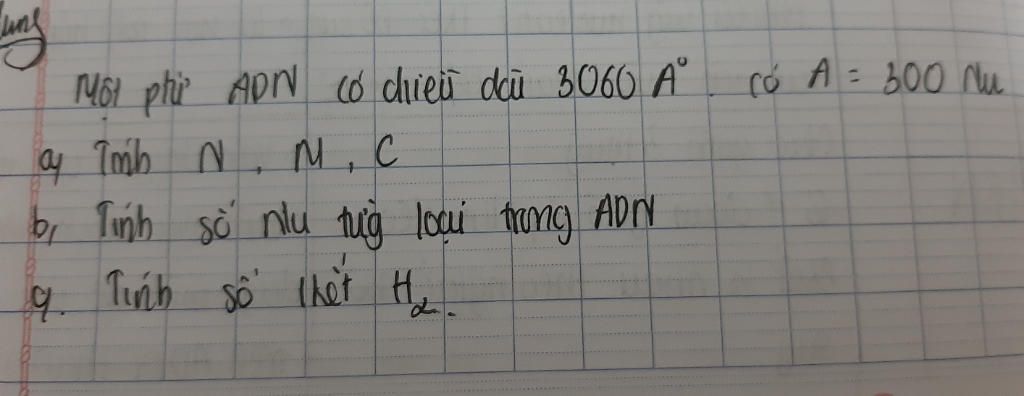 Một phtử ADN có chiều dài 3060 A° có A = 300 Nu
a, Tính N, M, C
b, Tính số Nu từng loại trong ADN
c. Tính số lkết H₂.